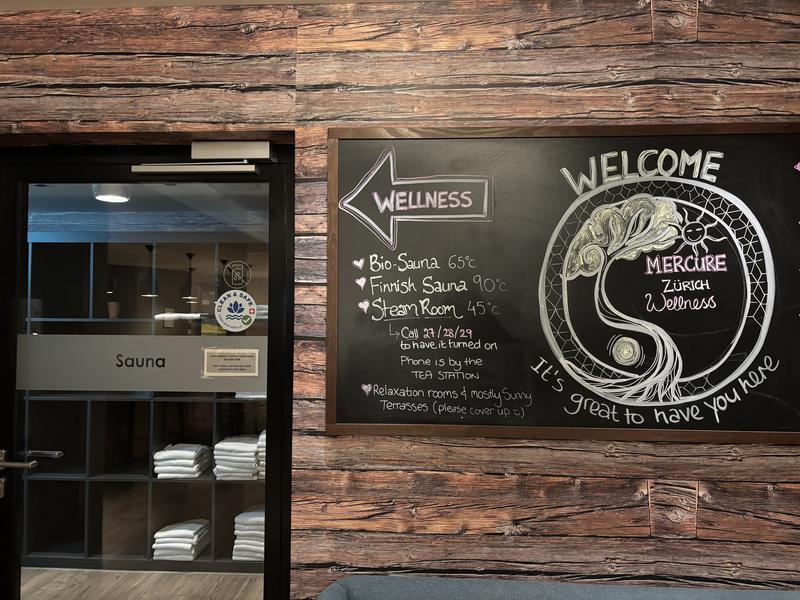 WELLNESS
Bio-Sauna 65°C
Finnish Sauna 90°C
Steam Room 45°C
Call 27/28/29
to have it turned on
Phone is by the
TEA STATION
Relaxation rooms & mostly Sunny
Terrasses (please cover up :)
WELCOME
MERCURE
ZÜRICH
Wellness
It's great to have you here
CLEAN & SAFE
Sauna